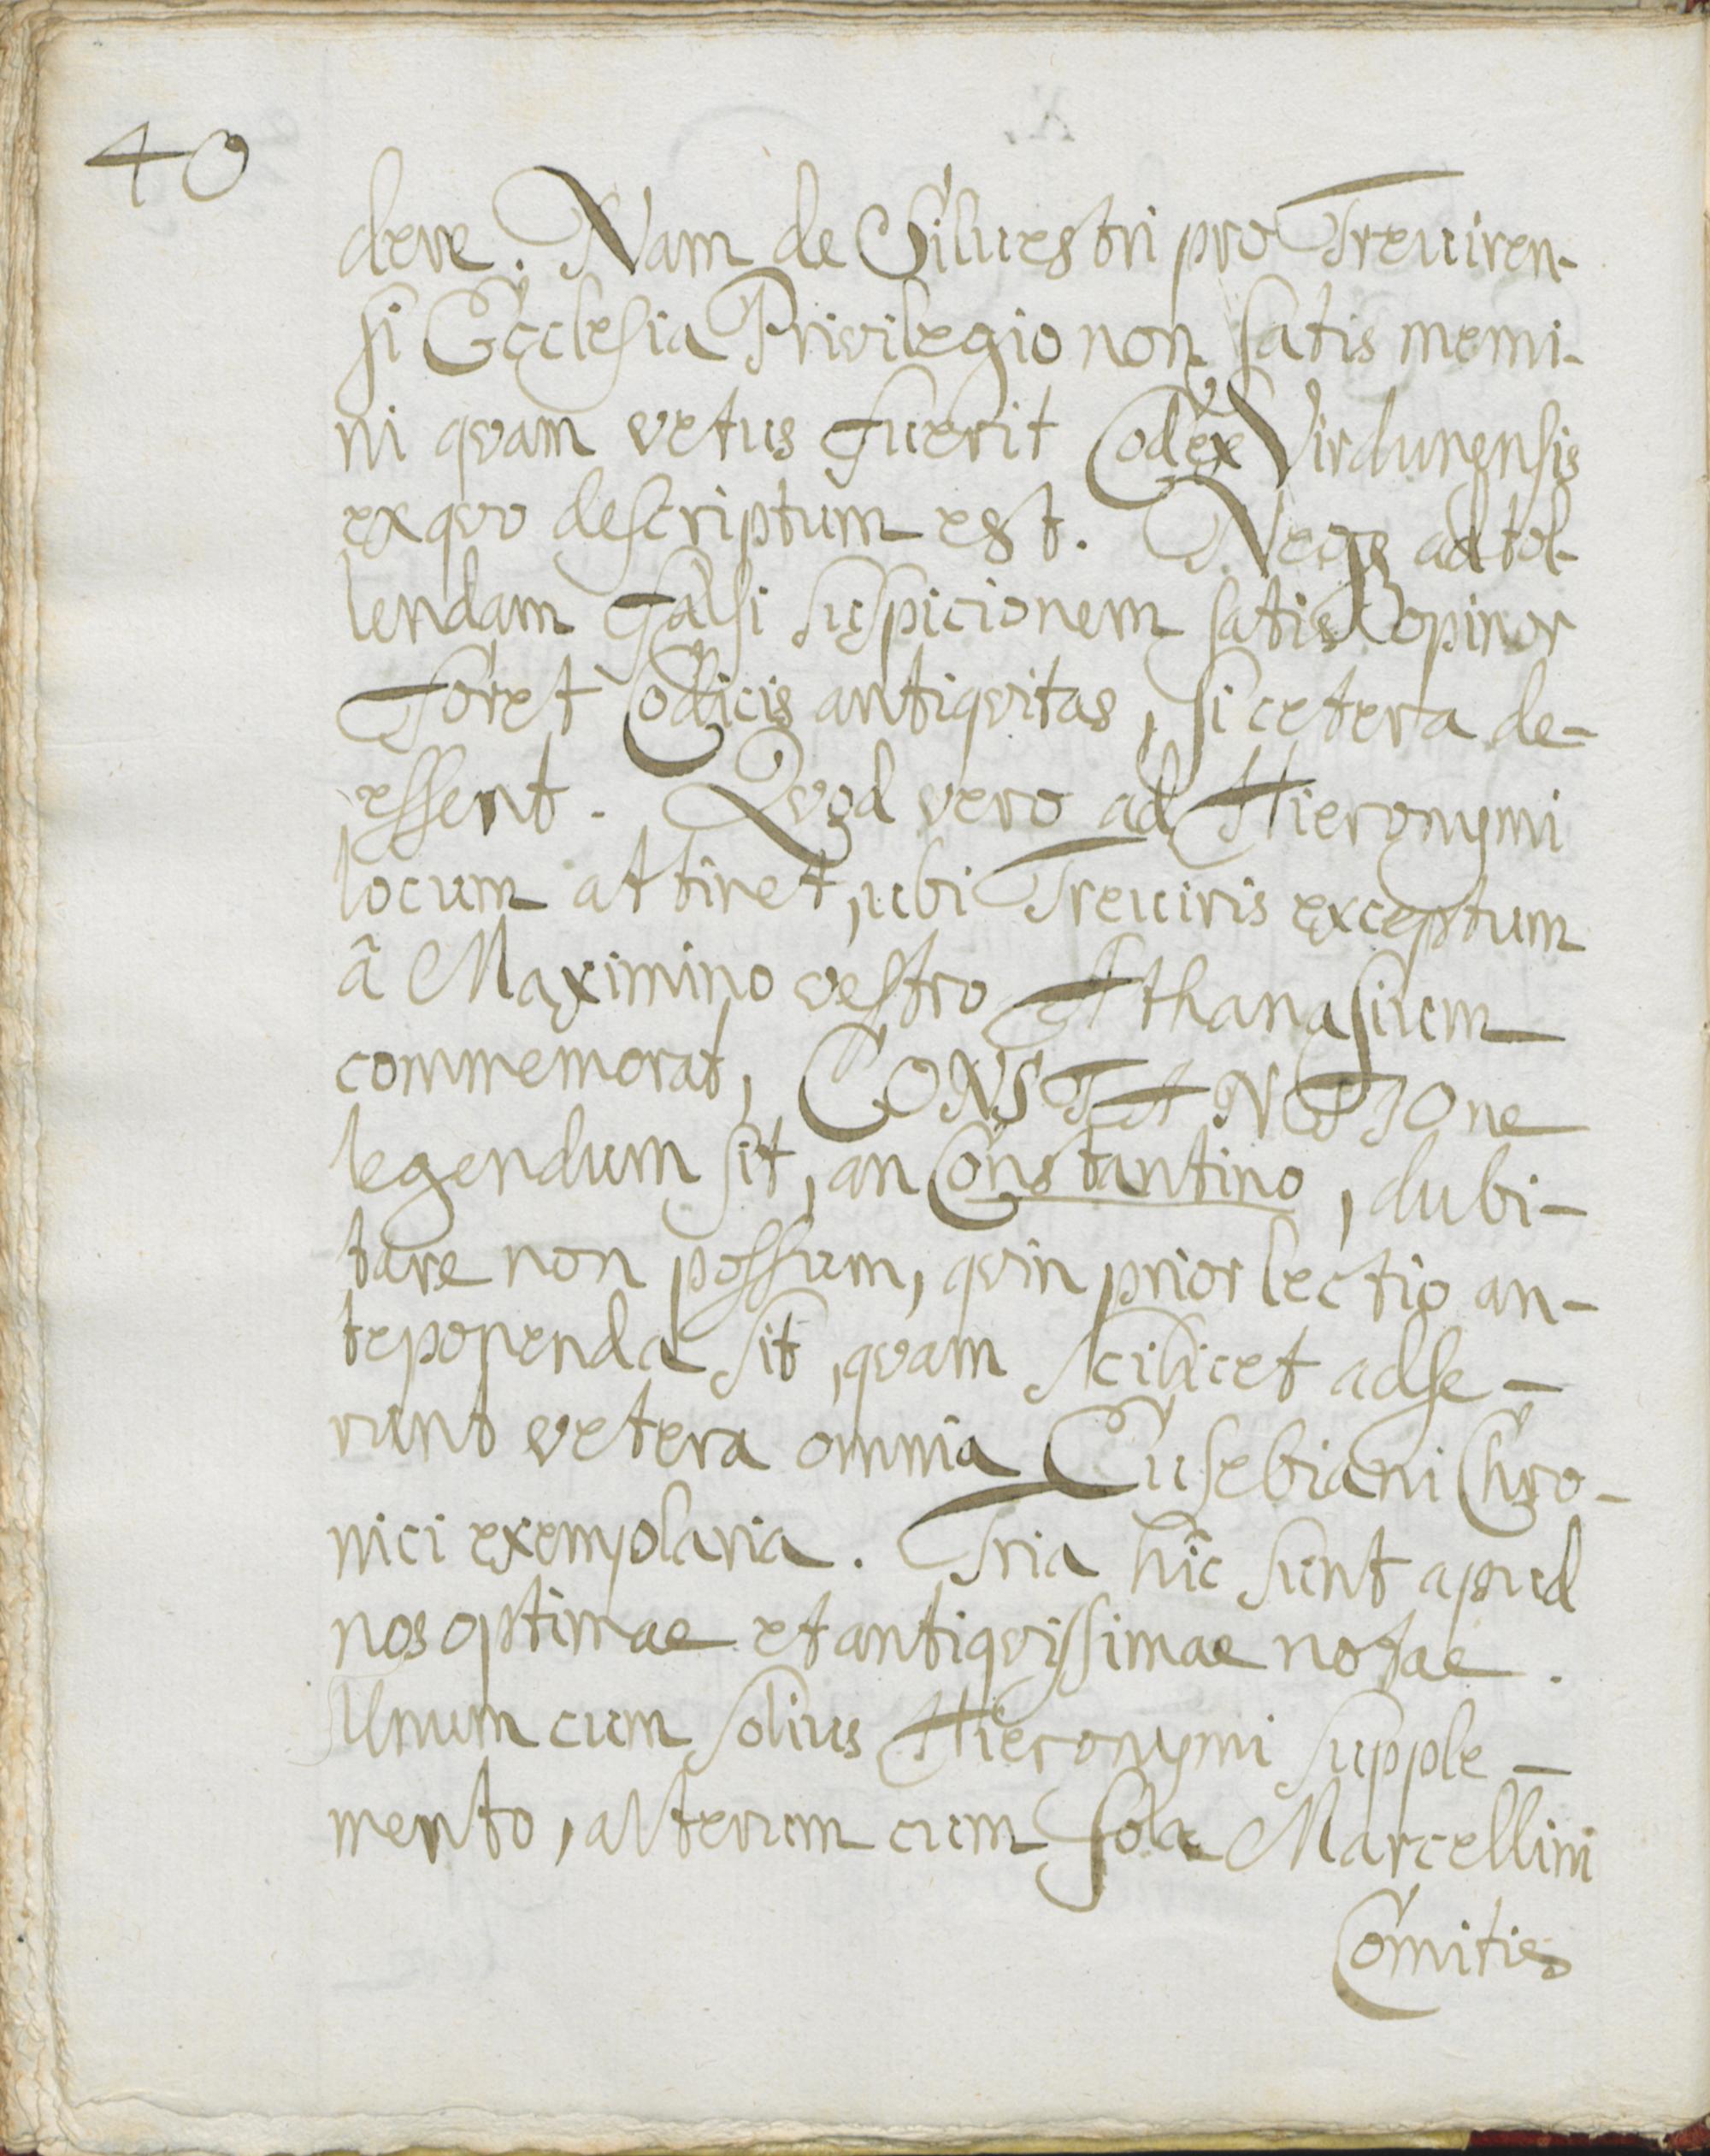 40
dere. Nam de Siluestri pro Treuiren-
si Ecclesia Privilegio non satis memi-
ni qvam vetus fuerit Codex Virdunensis
ex qvo descriptum est. Neqs ad tol-
lendam falsi suspicionem satis opinor
foret Codicis antiqvitas, si cetera de-
essent. Qvod vero ad Hieronymi
locum attinet, ubi Treuiris exceptum
â Maximino vestro Athanasium
commemorat, CONSTANTIOne
legendum sit, an Constantino, dubi-
tare non possum, qvin prior lectio an-
teponenda sit, qvam scilicet adse-
runt vetera omnia Eusebiani Chro-
nici exemplaria. Tria hîc sunt apud
nos optimae et antiqvissimae notae.
Unum cum solius Hieronymi supple-
mento, alterum cum sola Marcellini
Comitis